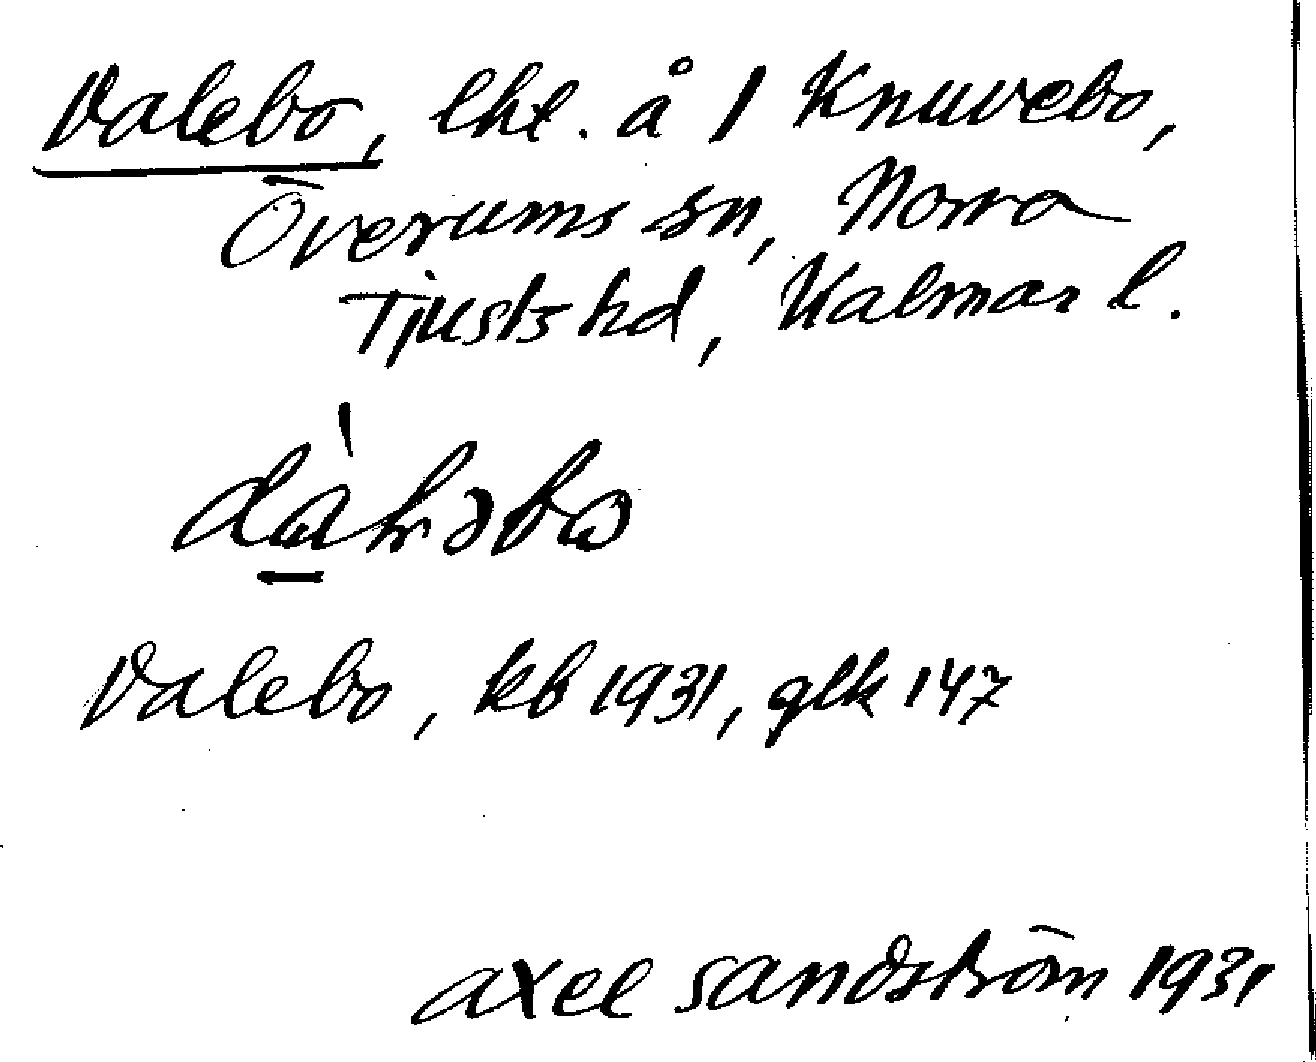 Valebo, lht. å 1 Knuvebo,
Överums sn, Norra
Tjusts hd, Kalmar l.
Valebo, kb 1931, glk 147
Axel Sandström 1931